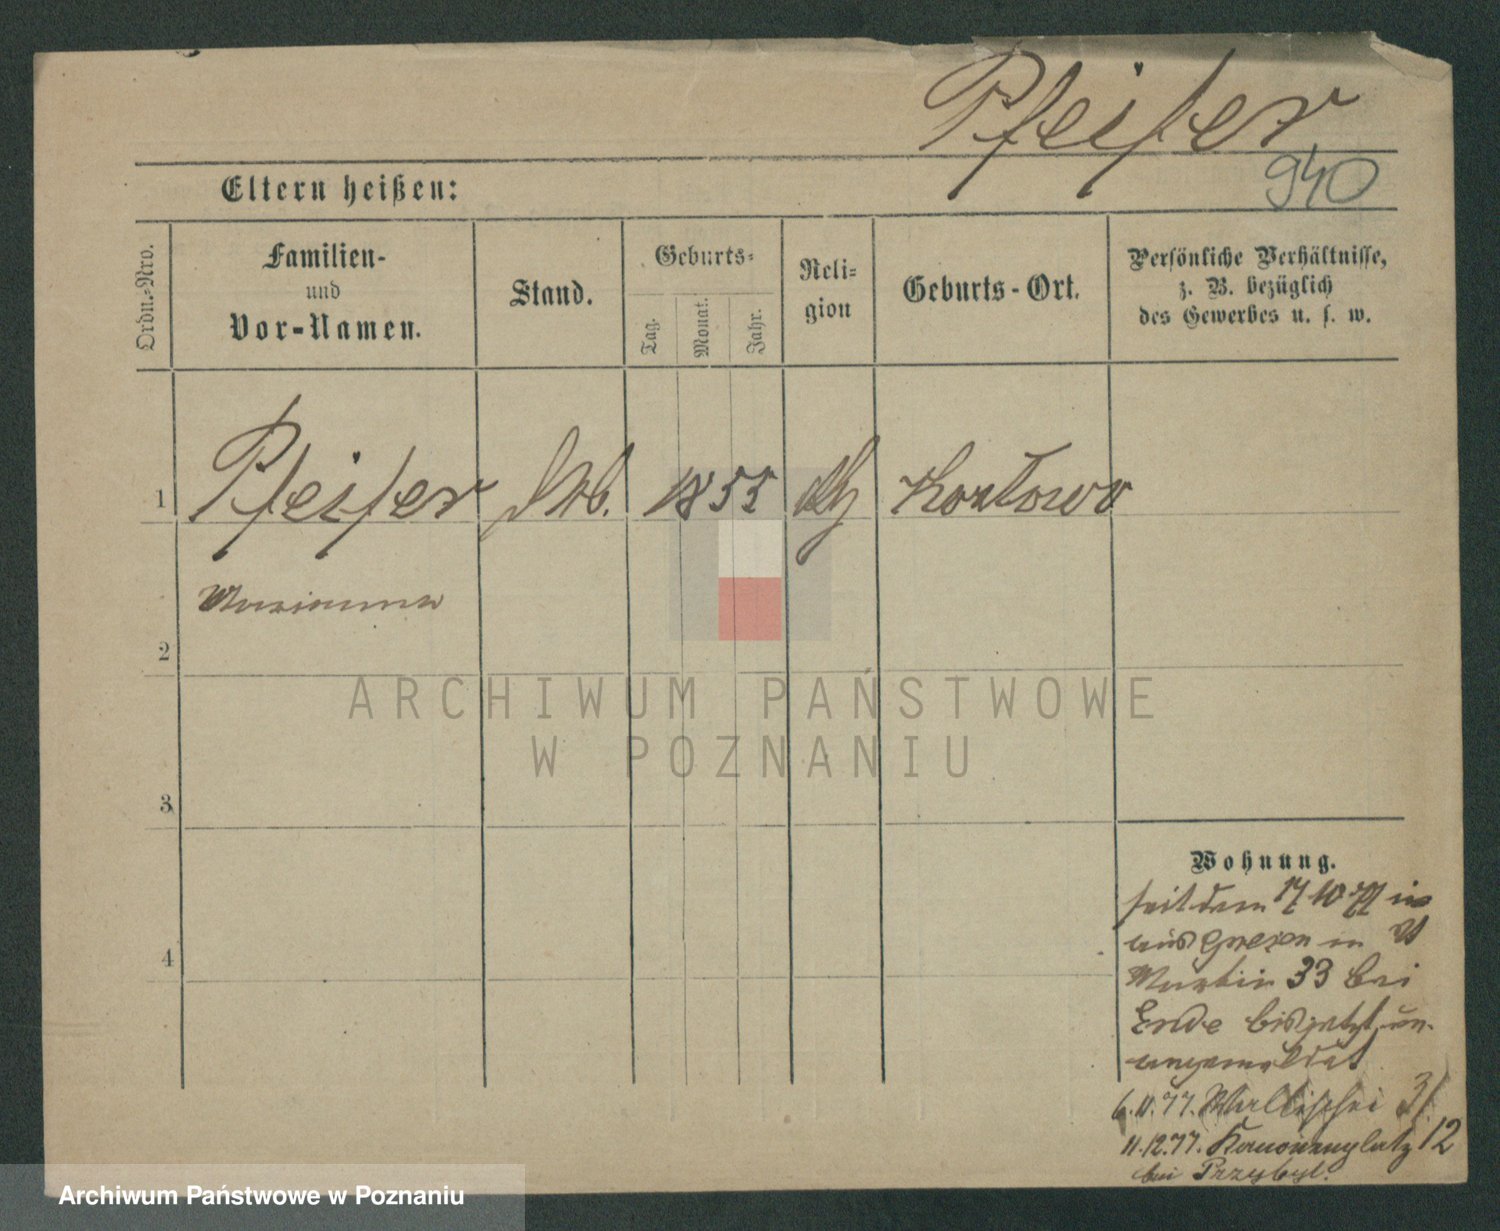 Pfeifer
940
Eltern heißen:
Ordn.-Nro.
Familien-
und
Vor-Namen.
Stand.
Geburts-
Tag.
Monat.
Jahr.
Reli-
gion
Geburts-Ort.
Persönliche Verhältnisse,
z. B. bezüglich
des Gewerbes u. s. w.
1 Pfeifer 1855 Kozlowo
Marianna
2
3
4
Wohnung.
seit dem 17 10 77
aus Gnesen in St
Martin 33 bei
Ende bis jetzt un-
angemeldet
6.11.77. Wallischei 3/
11.12.77. Kanonenplatz 12
bei Przybyl.
ARCHIWUM PAŃSTWOWE
W POZNANIU
Archiwum Państwowe w Poznaniu